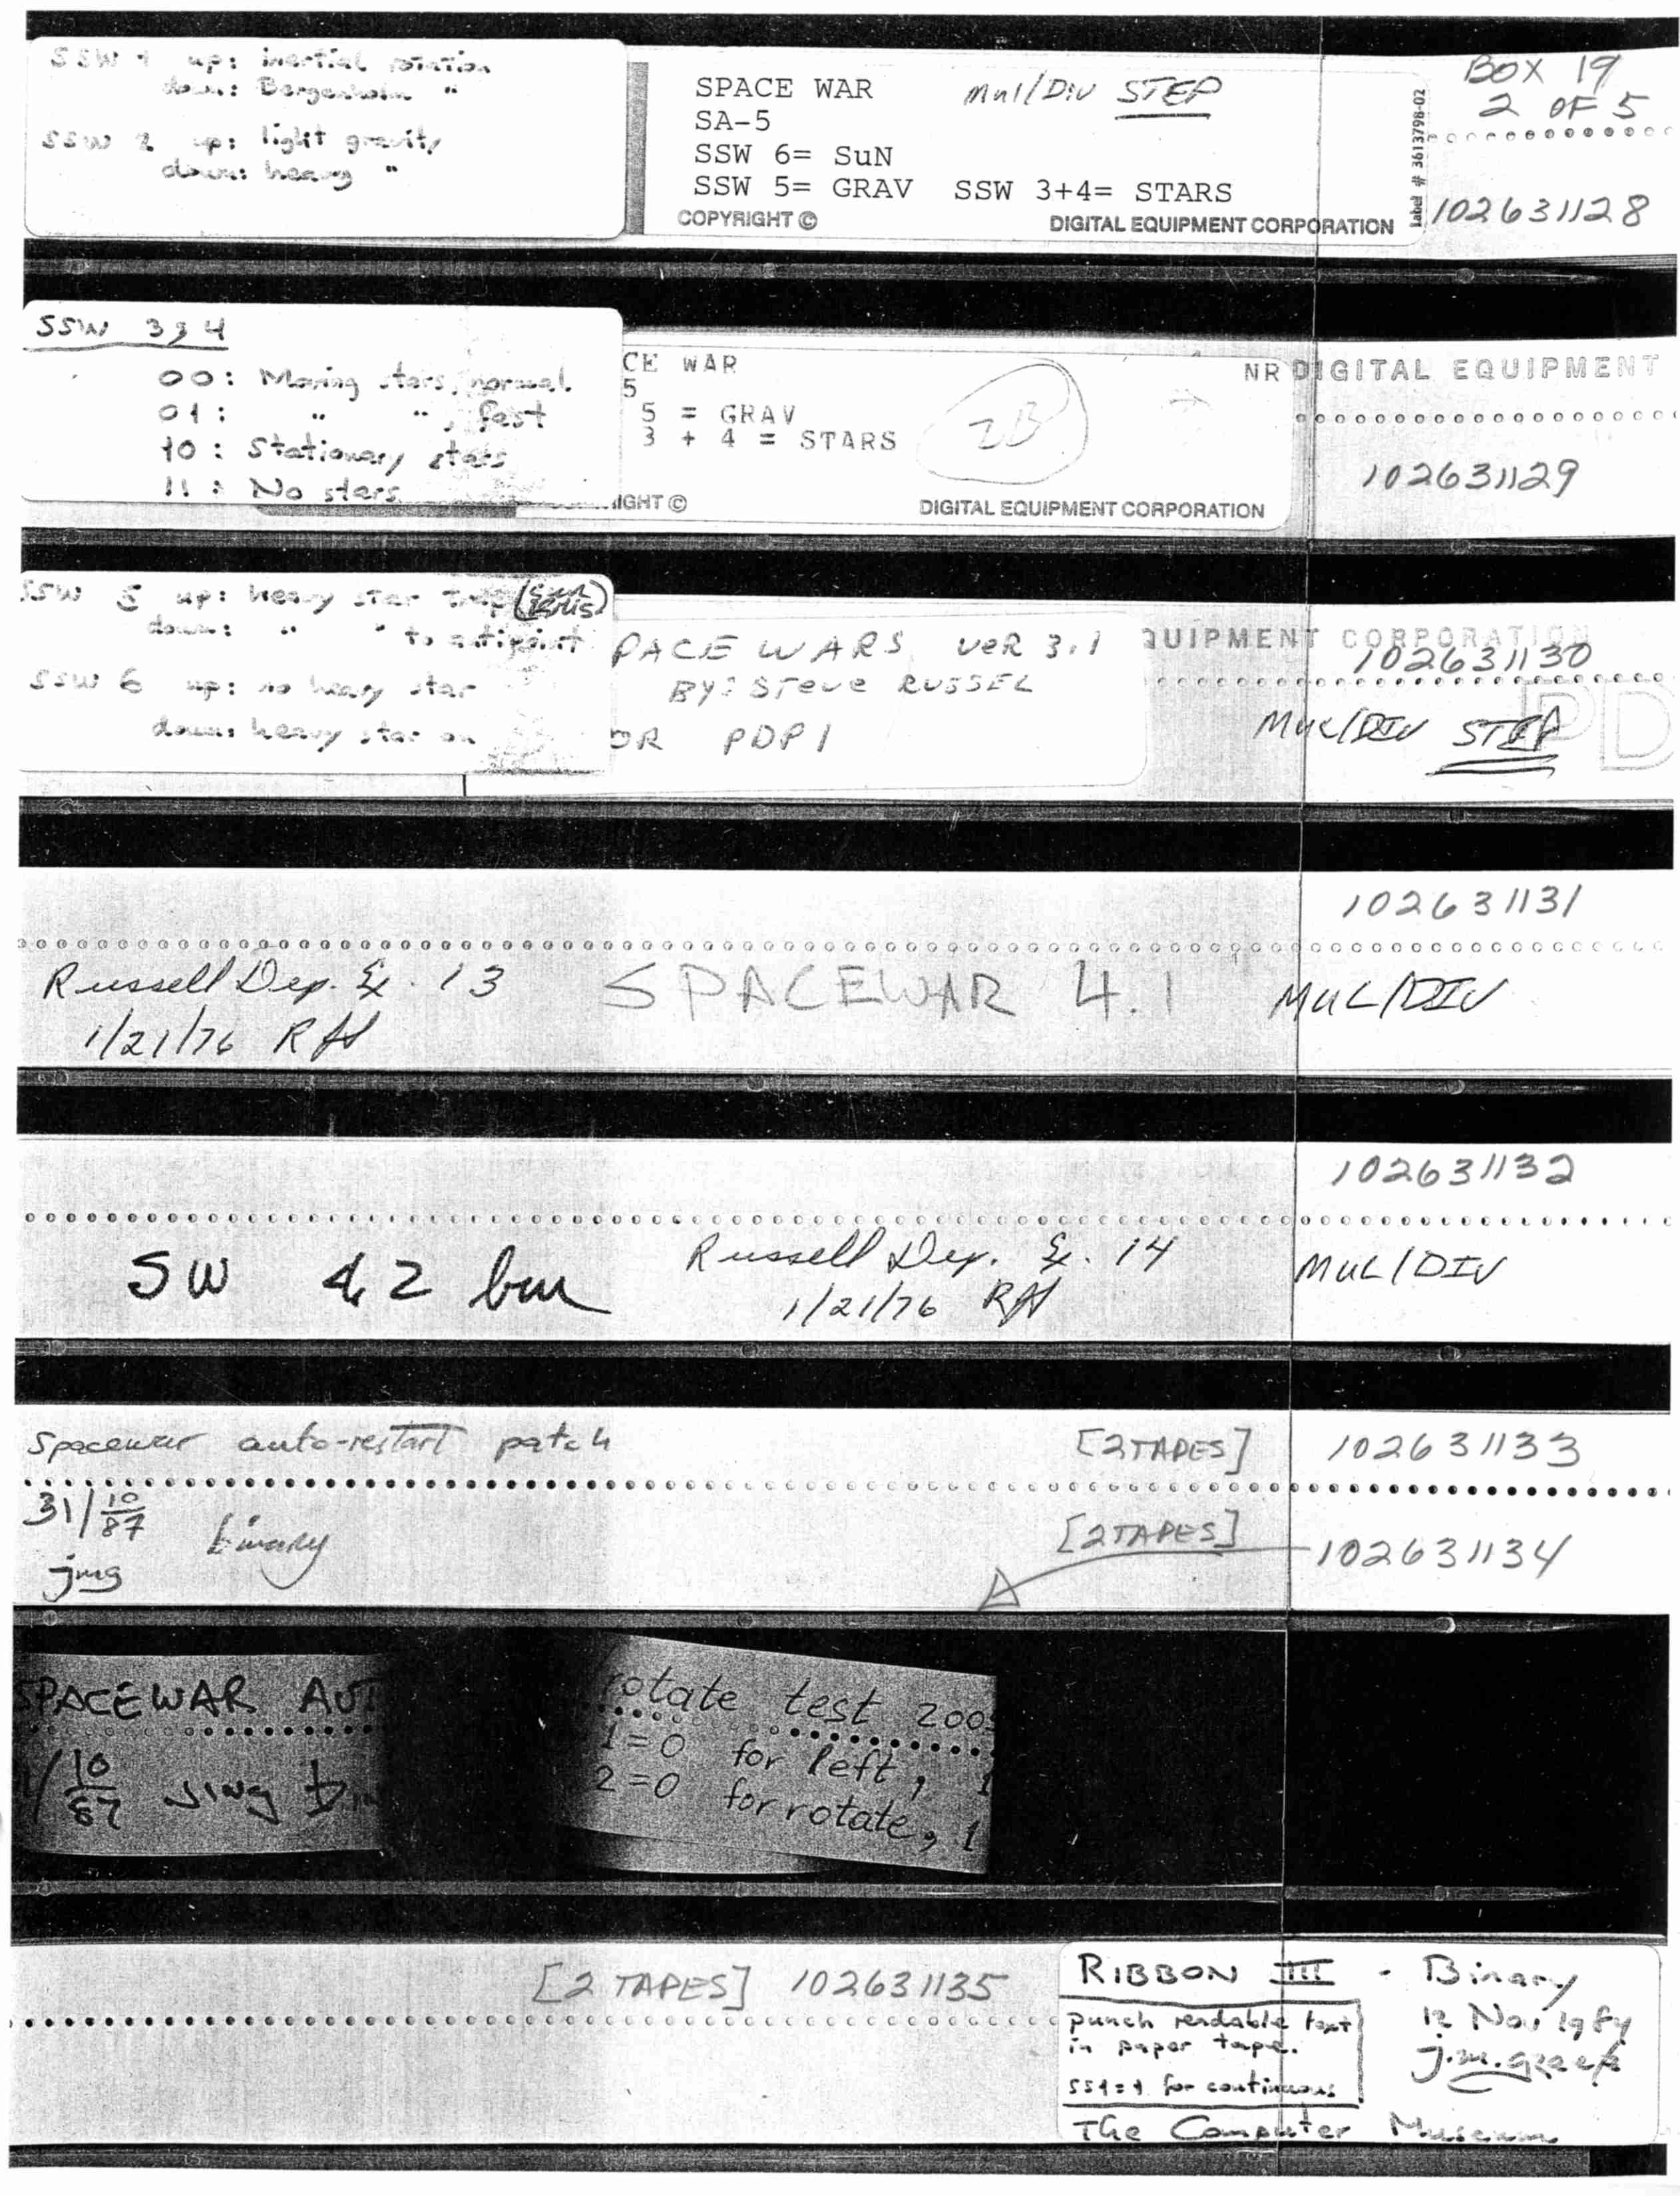 SSW 1 up: inertial rotation
down: Bergenholm "
SSW 2 up: light gravity
down: heavy "
SPACE WAR Mul/Div STEP
SA-5
SSW 6= SuN
SSW 5= GRAV SSW 3+4= STARS
COPYRIGHT © DIGITAL EQUIPMENT CORPORATION
Label # 3613798-02
BOX 19
2 OF 5
102631128
SSW 3 & 4
00: Moving stars, normal
01: " ", fast
10: Stationary stars
11: No stars
CE WAR
5
5 = GRAV
3 + 4 = STARS
2B
IGHT © DIGITAL EQUIPMENT CORPORATION
NR DIGITAL EQUIPMENT
102631129
SSW 5 up: heavy star trap
down: " " to antipoint
SSW 6 up: no heavy star
down: heavy star on
PACE WARS VeR 3.1
BY: STeve RUSSEL
OR PDP1
QUIPMENT CORPORATION
102631130
MUL/DIV STEP
PD
102631131
Russell Dep. Ex. 13 SPACEWAR 4.1 MUL/DIV
1/21/76 RH
102631132
SW 4.2 bin Russell Dep. Ex. 14 MUL/DIV
1/21/76 RH
Spacewar auto-restart patch [2 TAPES] 102631133
31/10/87 binary [2 TAPES] 102631134
jmg
SPACEWAR AUT
/10/87 jmg bin
rotate test 200
1=0 for left, 1
2=0 for rotate, 1
[2 TAPES] 102631135
RIBBON III - Binary
punch readable text
in paper tape.
SS1=1 for continuous
12 Nov 1984
The Computer Museum